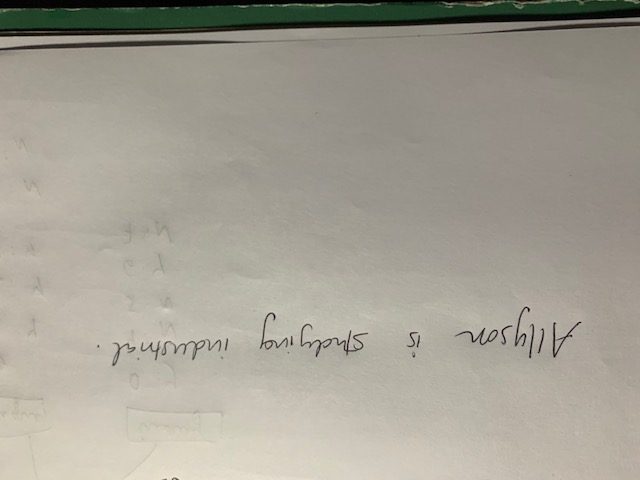 Allyson is studying industrial.